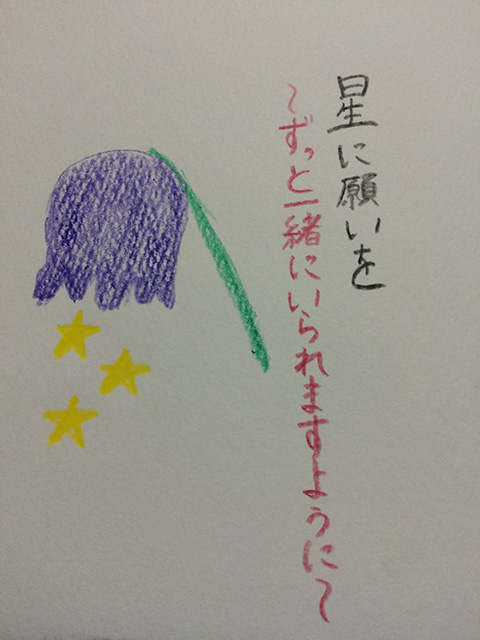 星に願いを
~ずっと一緒にいられますように~